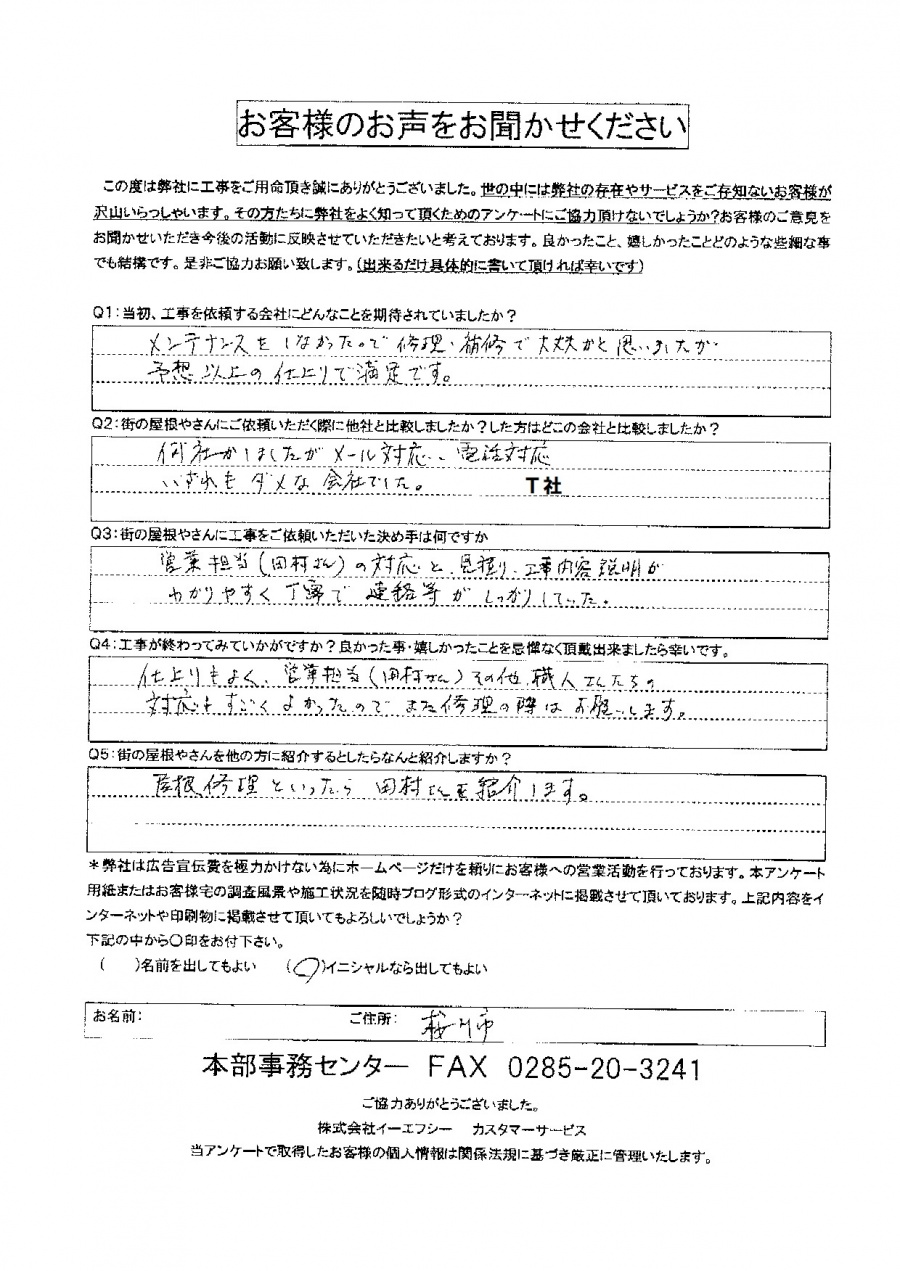 お客様のお声をお聞かせください
この度は弊社に工事をご用命頂き誠にありがとうございました。世の中には弊社の存在やサービスをご存知ないお客様が
沢山いらっしゃいます。その方たちに弊社をよく知って頂くためのアンケートにご協力頂けないでしょうか?お客様のご意見を
お聞かせいただき今後の活動に反映させていただきたいと考えております。良かったこと、嬉しかったことどのような些細な事
でも結構です。是非ご協力お願い致します。(出来るだけ具体的に書いて頂ければ幸いです)
Q1:当初、工事を依頼する会社にどんなことを期待されていましたか?
メンテナンスをしなかったので修理・補修で大丈夫かと思いましたが
予想以上の仕上りで満足です。
Q2:街の屋根やさんにご依頼いただく際に他社と比較しましたか?した方はどこの会社と比較しましたか?
何社かしましたがメール対応、電話対応
いずれもダメな会社でした。 T社
Q3:街の屋根やさんに工事をご依頼いただいた決め手は何ですか
営業担当(田村さん)の対応と、見積り、工事内容説明が
わかりやすく丁寧で連絡等がしっかりしていた。
Q4:工事が終わってみていかがですか?良かった事・嬉しかったことを忌憚なく頂戴出来ましたら幸いです。
仕上りもよく、営業担当(田村さん)その他、職人さんたちの
対応もすごくよかったのでまた修理の際はお願いします。
Q5:街の屋根やさんを他の方に紹介するとしたらなんと紹介しますか?
屋根修理といったら田村さんを紹介します。
*弊社は広告宣伝費を極力かけない為にホームページだけを頼りにお客様への営業活動を行っております。本アンケート
用紙またはお客様宅の調査風景や施工状況を随時ブログ形式のインターネットに掲載させて頂いております。上記内容をイ
ンターネットや印刷物に掲載させて頂いてもよろしいでしょうか?
下記の中から〇印をお付下さい。
( )名前を出してもよい (〇)イニシャルなら出してもよい
お名前: ご住所: 桜川市
本部事務センター FAX 0285-20-3241
ご協力ありがとうございました。
株式会社イーエフシー カスタマーサービス
当アンケートで取得したお客様の個人情報は関係法規に基づき厳正に管理いたします。